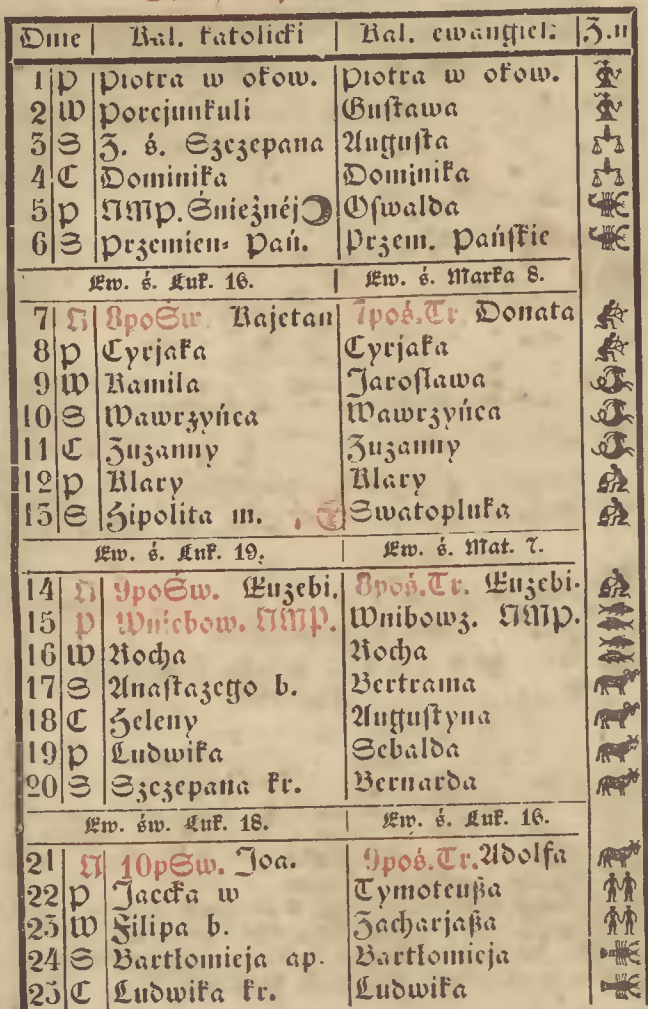 Dnie | Kal. katolicki | Kal. ewangiel. | Z.n
1 P Piotra w okow. Piotra w okow.
2 W Porcjunkuli Gustawa
3 S Z. ś. Szczepana Augusta
4 C Dominika Dominika
5 P NMP. Śnieżnéj Oswalda
6 S Przemien= Pań. Przem. Pańskie
Ew. ś. Łuk. 16. | Ew. ś. Marka 8.
7 N 8poŚw. Kajetan 7poś.Tr. Donata
8 P Cyrjaka Cyrjaka
9 W Kamila Jarosława
10 S Wawrzyńca Wawrzyńca
11 C Zuzanny Zuzanny
12 P Klary Klary
13 S Hipolita m. Swatopluka
Ew. ś. Łuk. 19. | Ew. ś. Mat. 7.
14 N 9poŚw. Euzebi. 8poś.Tr. Euzebi.
15 P Wniebow. NMP. Wnibowz. NMP.
16 W Rocha Rocha
17 S Anastazego b. Bertrama
18 C Heleny Augustyna
19 P Ludwika Sebalda
20 S Szczepana kr. Bernarda
Ew. św. Łuk. 18. | Ew. ś. Łuk. 16.
21 N 10pŚw. Joa. 9poś.Tr. Adolfa
22 P Jaccka w Tymoteußa
23 W Filipa b. Zacharjaßa
24 S Bartłomieja ap. Bartłomieja
25 C Ludwika kr. Ludwika